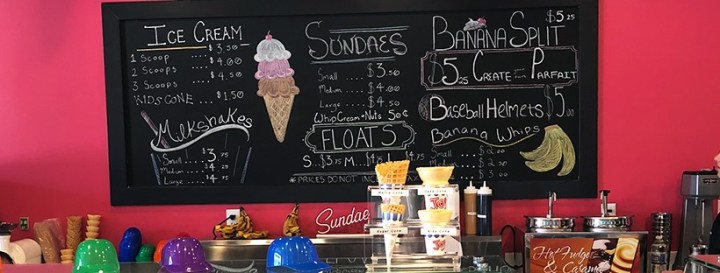 ICE CREAM
1 Scoop .... $3.50
2 Scoops .... $4.00
3 Scoops .... $4.50
KIDS CONE ... $1.50
Milkshakes
Small .... $3.75
Medium .... 4.25
Large .... 4.75
SUNDAES
Small .... $3.50
Medium .... $4.00
Large .... $4.50
WHIP CREAM + NUTS 50¢
FLOATS
S...$3.75 M...
*PRICES DO NOT
BANANA SPLIT $5.25
$5.25 CREATE A PARFAIT
BASEBALL HELMETS. $5.00
BANANA WHIPS
Small .... $2.00
Medium
Large
Sundae
ICE CREAM
Hot Fudge
& Caramel